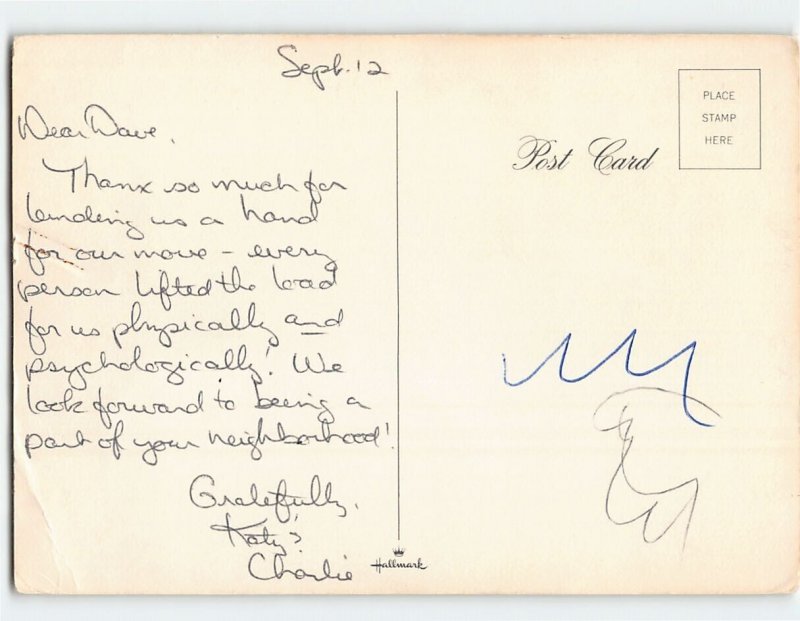 Sept. 12
Dear Dave,
Thanx so much for
lending us a hand
for our move - every
person lifted the load
for us physically and
psychologically! We
look forward to being a
part of your neighborhood!
Gratefully,
Katy &
Charlie
Post Card
PLACE
STAMP
HERE
Hallmark